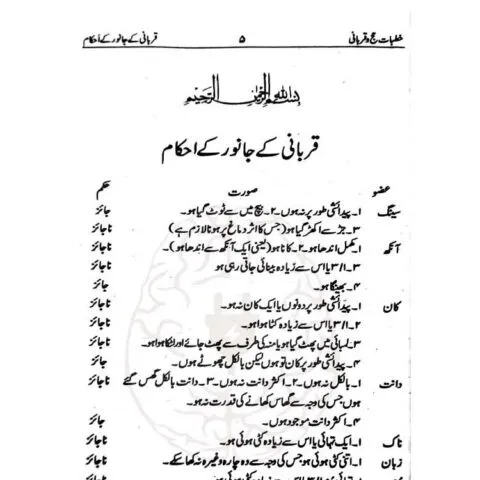 خطبات حج و قربانی ۵ قربانی کے جانور کے احکام
بسم اللہ الرحمن الرحیم
قربانی کے جانور کے احکام
عضو صورت حکم
سینگ ۱۔ پیدائشی طور پر نہ ہوں۔ ۲۔ بیچ میں سے ٹوٹ گیا ہو۔ جائز
۳۔ جڑ سے اکھڑ گیا ہو (جس کا اثر دماغ پر ہونا لازم ہے) ناجائز
آنکھ ۱۔ مکمل اندھا ہو۔ ۲۔ کانا ہو (یعنی ایک آنکھ سے اندھا ہو)۔ ناجائز
۳۔ ۱/۳ یا اس سے زیادہ بینائی جاتی رہی ہو ناجائز
۴۔ بھینگا ہو۔ جائز
کان ۱۔ پیدائشی طور پر دونوں یا ایک کان نہ ہو۔ ناجائز
۲۔ ۱/۳ یا اس سے زیادہ کٹا ہوا ہو۔ ناجائز
۳۔ لمبائی میں پھٹ گیا ہو یا منہ کی طرف سے پھٹ جائے اور لٹکا ہوا ہو۔ جائز
۴۔ پیدائشی طور پر کان تو ہوں لیکن بالکل چھوٹے ہوں۔ جائز
دانت ۱۔ بالکل نہ ہوں۔ ۲۔ اکثر دانت نہ ہوں۔ ۳۔ دانت بالکل گھس گئے ناجائز
ہوں جس کی وجہ سے گھاس کھانے کی قدرت نہ ہو۔
۴۔ اکثر دانت موجود ہوں۔ جائز
ناک ۱۔ ایک تہائی یا اس سے زیادہ کٹی ہو۔ ناجائز
زبان ۱۔ اتنی کٹی ہوئی ہو جس کی وجہ سے وہ چارہ وغیرہ نہ کھا سکے۔ ناجائز